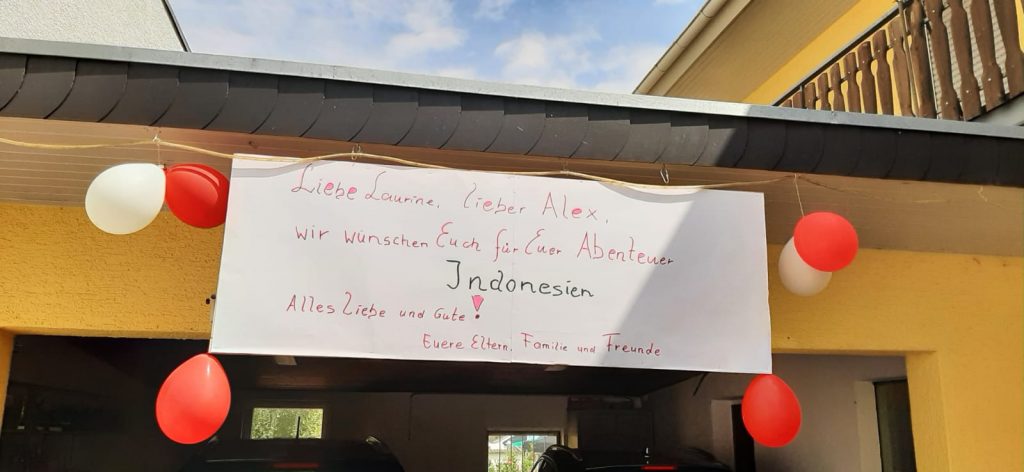 Liebe Laurine, lieber Alex,
wir wünschen Euch für Euer Abenteuer
Indonesien
Alles Liebe und Gute!
Euere Eltern, Familie und Freunde